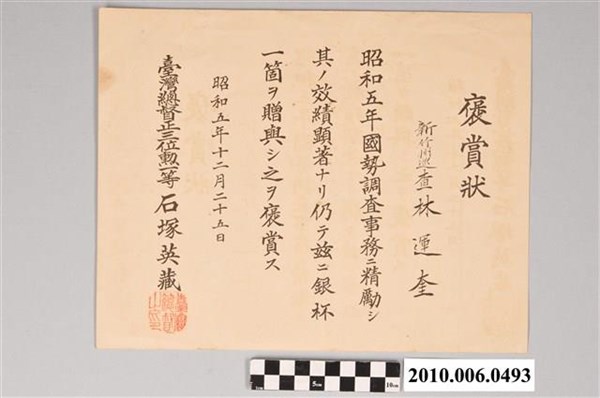 褒賞狀
新竹州巡查 林運奎
昭和五年國勢調査事務ニ精勵シ
其ノ效績顯著ナリ仍テ玆ニ銀杯
一箇ヲ贈與シ之ヲ褒賞ス
昭和五年十二月二十五日
臺灣總督正三位勲一等 石塚英藏
0cm 5cm 10cm
2010.006.0493